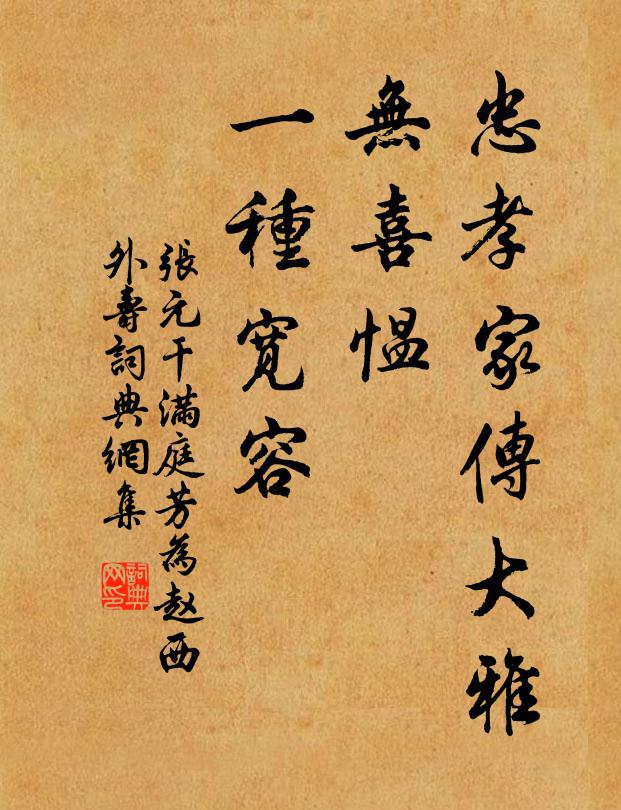 忠孝家傳大雅
無喜愠
一種寬容
張元干滿庭芳為赵西
外壽詞典網集
詞典网印